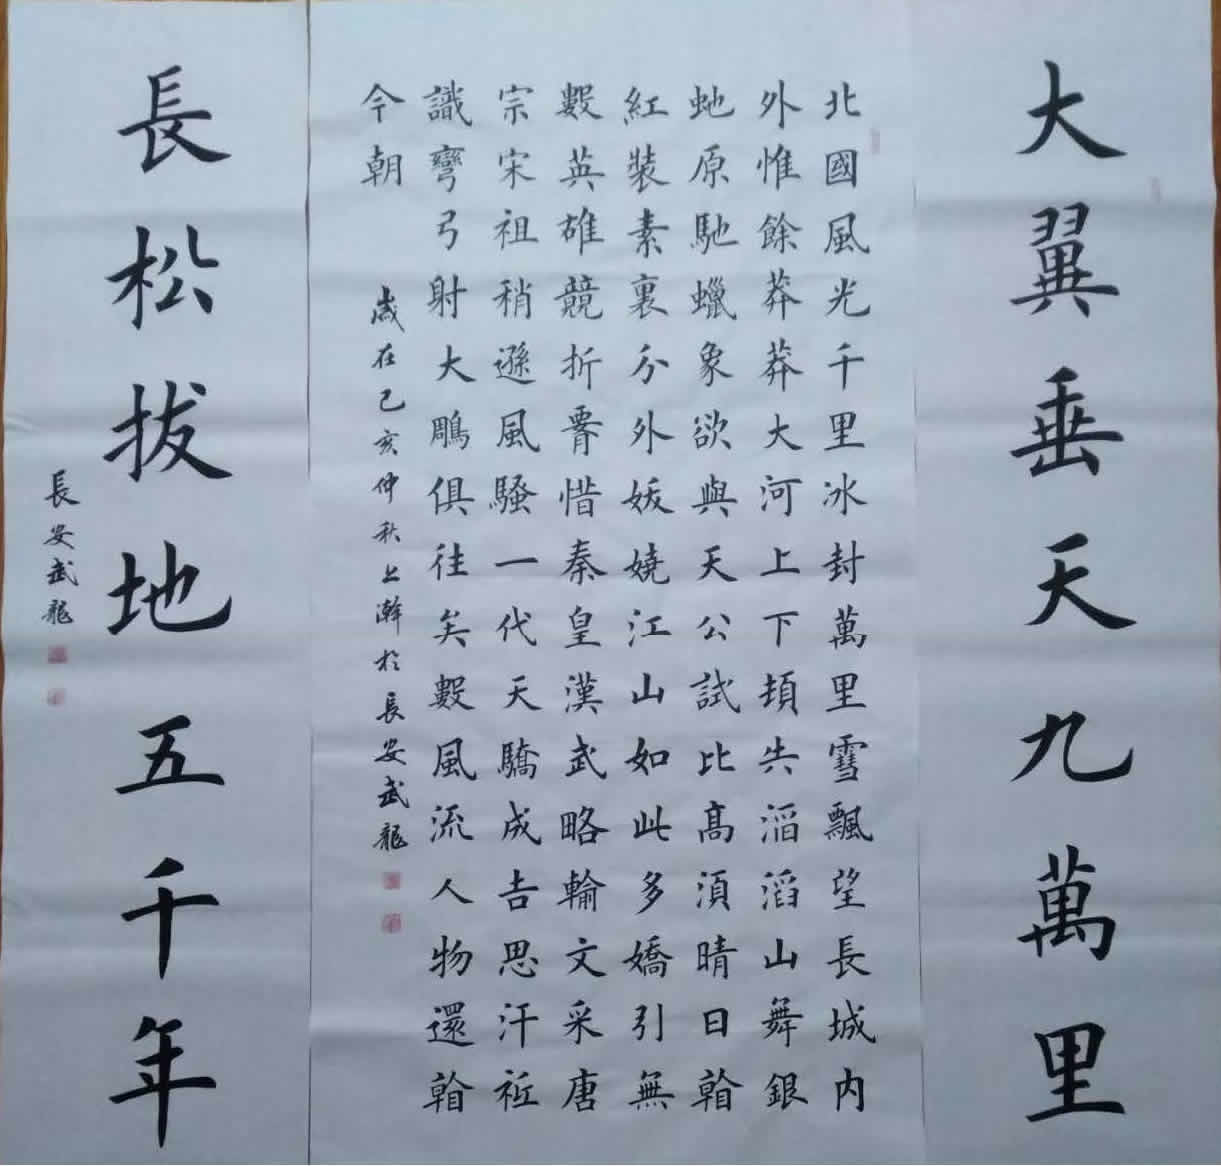 大翼垂天九萬里
北國風光千里冰封萬里雪飄望長城内
外惟餘莽莽大河上下頓失滔滔山舞銀
虵原馳蠟象欲與天公試比高須晴日看
紅裝素裹分外妖嬈江山如此多嬌引無
數英雄競折腰惜秦皇漢武略輸文采唐
宗宋祖稍遜風騷一代天驕成吉思汗祇
識彎弓射大鵰俱往矣數風流人物還看
今朝
歲在己亥仲秋上澣於長安武龍
長松拔地五千年
長安武龍